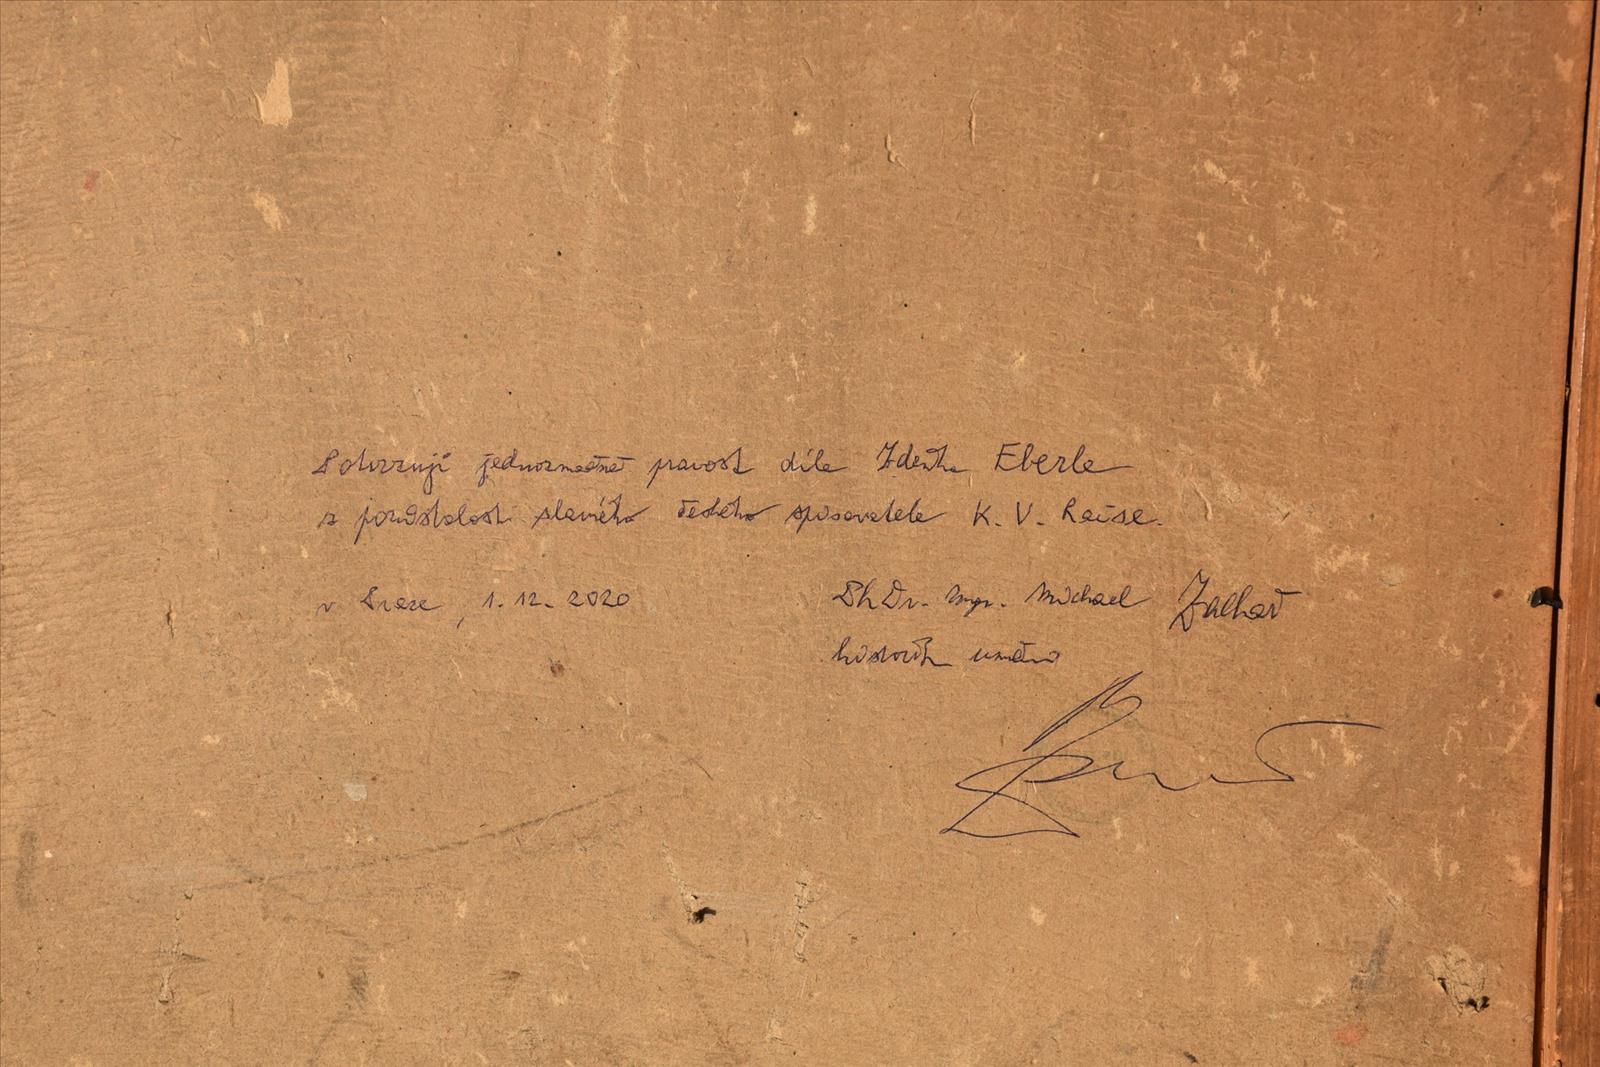 Potvrzuji jednoznačně pravost díla Zdeňka Eberle
z pozůstalosti slavného českého spisovatele K. V. Raise.
v Praze, 1.12.2020
PhDr. Mgr. Michael Zachař
historik umění